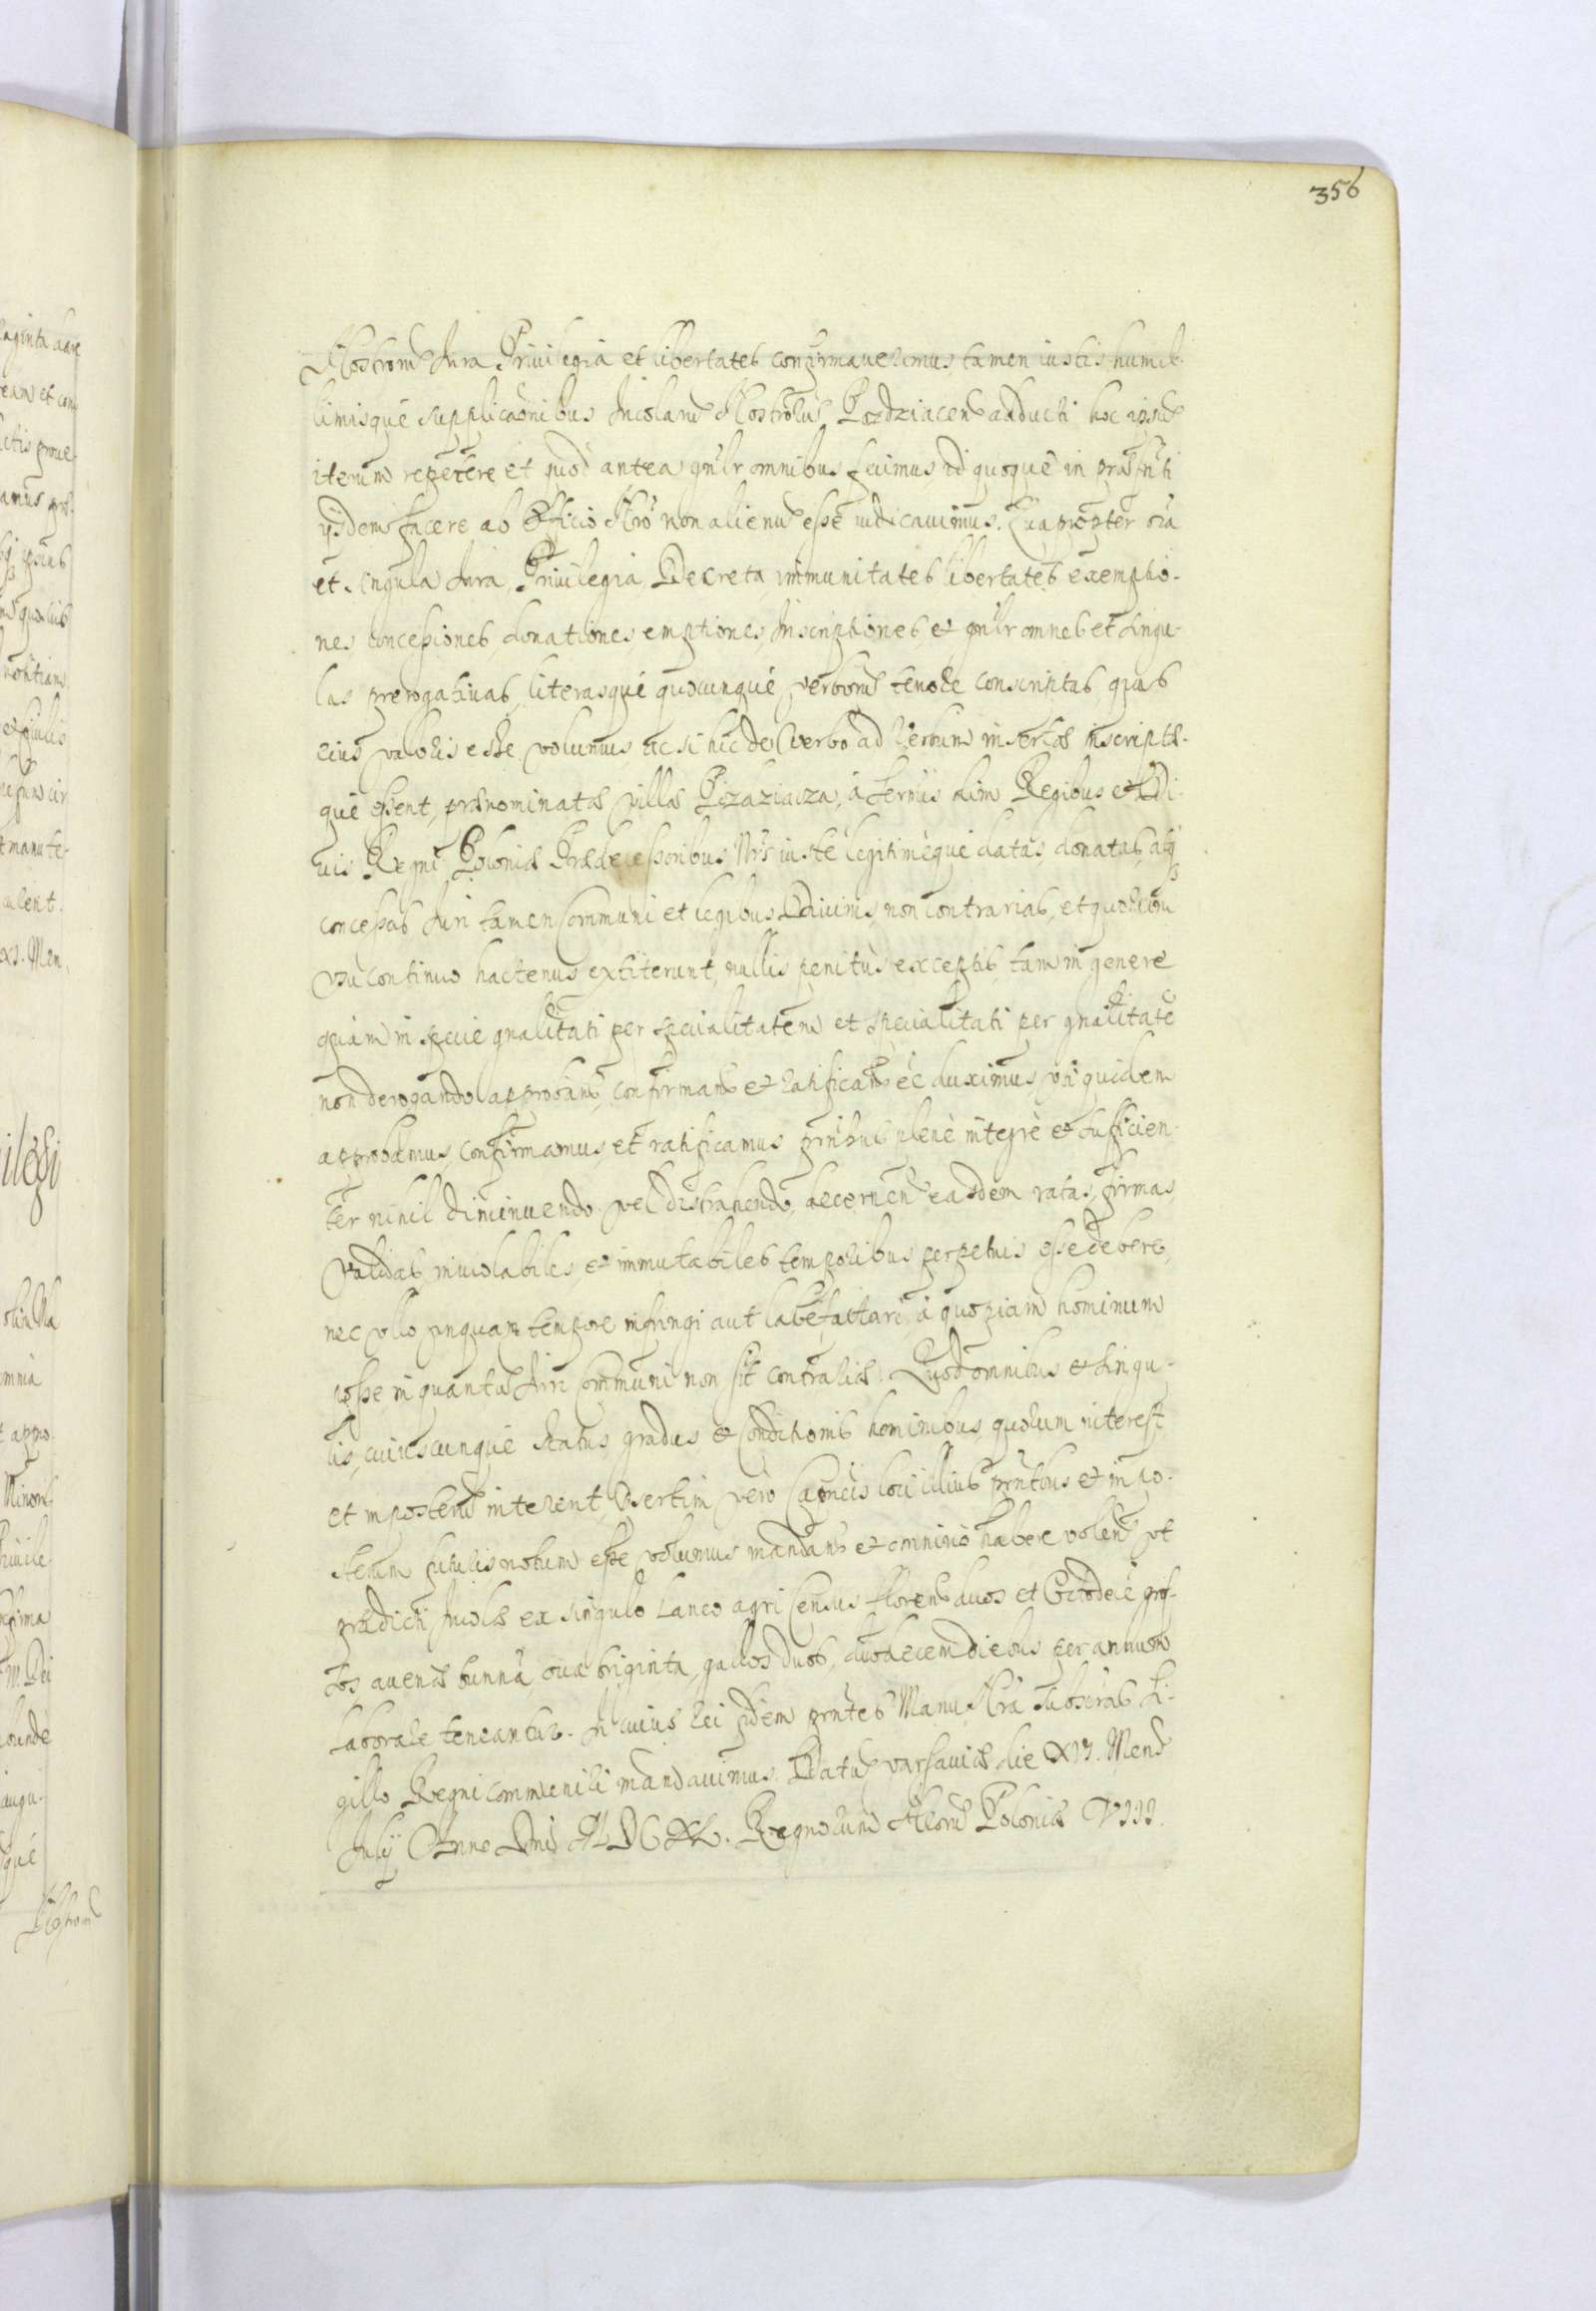 356
Nostrorũ Jura Privilegia et libertates confirmaverimus, tamen iustis humil-
limisque supplicaõnibus Incolarũ Nostrorũ Pozdziacen̄ adducti hoc ipsũ
iterum repetere et quod antea gn̄lr omnibus fecimus, id quoque in præsn̄ti
ijsdem facere ab Officio Nr̃o non alienũ esse iudicavimus. Quapropter oĩa
et singula Jura, Privilegia, Decreta, immunitates libertates exemptio-
nes, concessiones, donationes, emptiones, Inscriptiones, et gn̄lr omnes et singu-
las prerogativas, literasque quocunque verborũ tenore conscriptas, quas
eius valoris esse volumus ac si hic de verbo ad verbum insertæ inscriptæ-
que essent, prænominatæ villæ Pozdziacza, à Ser̃mis olim Regibus et Di-
vis Regni Poloniæ Prædecessoribus Nr̃is iuste legitimèque datas, donatas, atq
concessas Juri tamen Communi et legibus Divinis, non contrarias, et quæ
usu continuo hactenus extiterunt, nullis penitùs exceptis, tam in genere
quàm in specie gn̄alitati per specialitatem et specialitati per gn̄alitatē
non derogando approbanđ, confirmanđ et ratificanđ eē duximus, uti quidem
approbamus, confirmamus, et ratificamus prn̄tibus plenè integrè et sufficien-
ter nihil diminuendo vel distrahendo, decernen̄ easdem ratas, firmas,
validas, inviolabiles, et immutabiles temporibus perpetuis esse debere,
nec ullo unquam tempore infringi aut labefactari à quopiam hominum
posse in quantũ Juri Communi non sit contrariũ. Quod omnibus et singu-
lis, cuiuscunque status, gradus, et Conditionis hominibus, quorum interest
et in posterũ intererit, præsertim vero Cap̃neis loci illius prn̄tibus et in po-
sterum futuris notum esse volumus mandan̄ et omnino habere volen̄ ut
prædicti Incolæ ex singulo Laneo agri Census florenos duos et Octodecē gros-
sos avenæ tunnã, ova triginta, gallos duos, duodecem diebus per annum
laborare teneantur. In cuius rei fidem prn̄tes Manu Nr̃a Subscr̃as Si-
gillo Regni communiri mandavimus. Datũ Varsaviæ die XVI. Mens̃
Julij Anno Dn̄i MDCXL. Regnorum Nr̃orũ Poloniæ VIII.